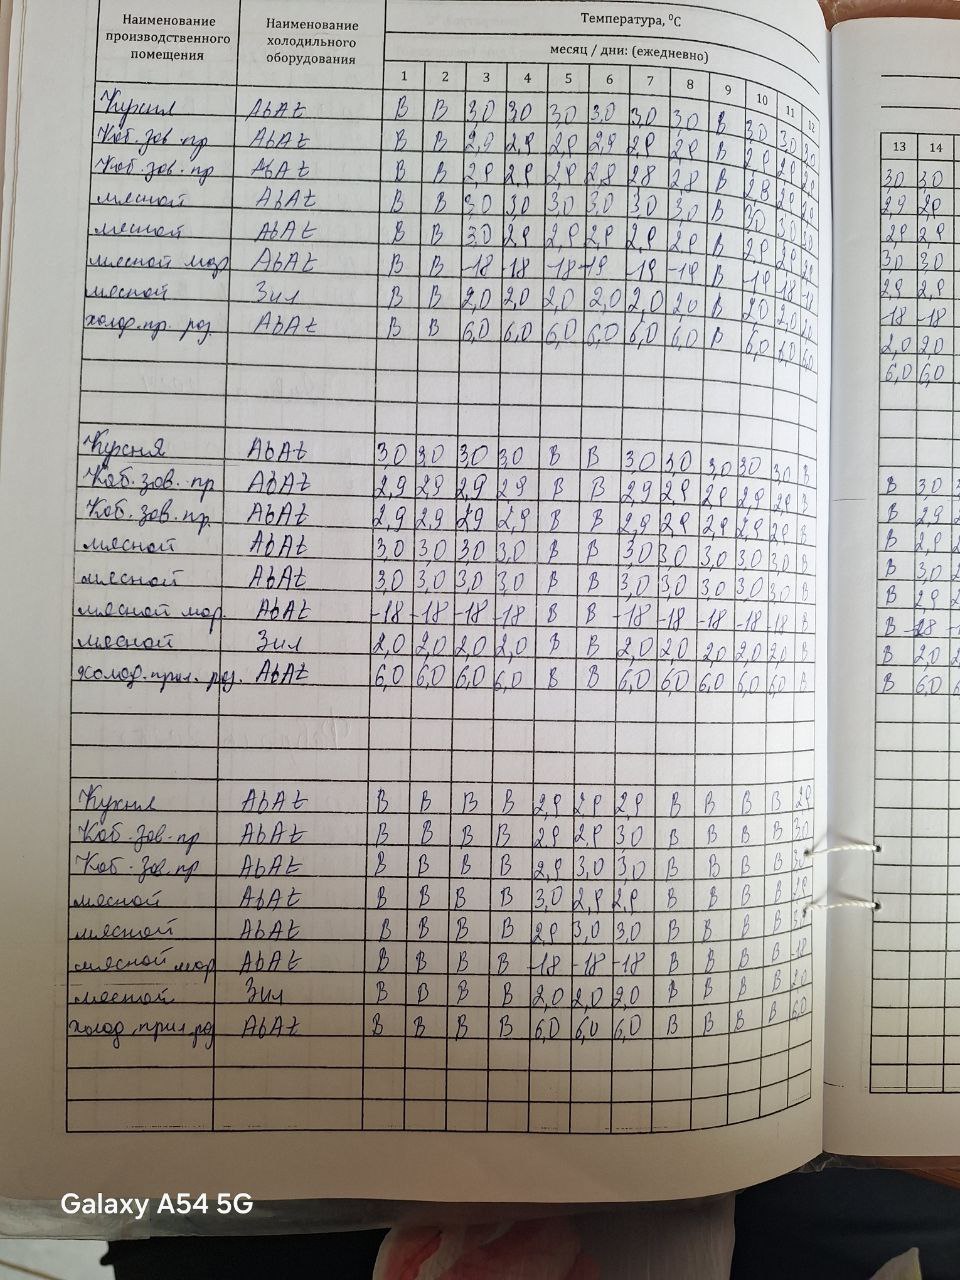 Наименование производственного помещения Наименование холодильного оборудования Температура, ⁰С
месяц / дни: (ежедневно)
1 2 3 4 5 6 7 8 9 10 11 12
13 14
Кухня Abat В В 3,0 3,0 3,0 3,0 3,0 3,0 В 3,0 3,0 3,0 3,0 3,0
Коб. зов. пр Abat В В 2,9 2,9 2,9 2,9 2,9 2,9 В 2,9 2,9 2,9 2,9 2,9
Коб. зов. пр Abat В В 2,9 2,9 2,9 2,8 2,8 2,8 В 2,8 2,9 2,9 2,9 2,9
мясной Abat В В 3,0 3,0 3,0 3,0 3,0 3,0 В 3,0 3,0 3,0 3,0 3,0
мясной Abat В В 3,0 2,9 2,9 2,9 2,9 2,9 В 2,9 2,9 2,9 2,9 2,9
мясной мор Abat В В -18 -18 -18 -19 -19 -19 В -19 -18 -18 -18 -18
мясной Зил В В 2,0 2,0 2,0 2,0 2,0 2,0 В 2,0 2,0 2,0 2,0 2,0
холод. пр. роз. Abat В В 6,0 6,0 6,0 6,0 6,0 6,0 В 6,0 6,0 6,0 6,0 6,0
Кухня Abat 3,0 3,0 3,0 3,0 В В 3,0 3,0 3,0 3,0 3,0 В В 3,0
Коб. зов. пр Abat 2,9 2,9 2,9 2,9 В В 2,9 2,9 2,9 2,9 2,9 В В 2,9
Коб. зов. пр. Abat 2,9 2,9 2,9 2,9 В В 2,9 2,9 2,9 2,9 2,9 В В 2,9
мясной Abat 3,0 3,0 3,0 3,0 В В 3,0 3,0 3,0 3,0 3,0 В В 3,0
мясной Abat 3,0 3,0 3,0 3,0 В В 3,0 3,0 3,0 3,0 3,0 В В 2,9
мясной мор. Abat -18 -18 -18 -18 В В -18 -18 -18 -18 -18 В В -18
мясной Зил 2,0 2,0 2,0 2,0 В В 2,0 2,0 2,0 2,0 2,0 В В 2,0
холод. прил. роз. Abat 6,0 6,0 6,0 6,0 В В 6,0 6,0 6,0 6,0 6,0 В В 6,0
Кухня Abat В В В В 2,9 2,9 2,9 В В В В 2,9
Коб. зов. пр Abat В В В В 2,9 2,9 3,0 В В В В 3,0
Коб. зов. пр Abat В В В В 2,9 3,0 3,0 В В В В 3,0
мясной Abat В В В В 3,0 2,9 2,9 В В В В 2,9
мясной Abat В В В В 2,9 3,0 3,0 В В В В 3,0
мясной мор Abat В В В В -18 -18 -18 В В В В -18
мясной Зил В В В В 2,0 2,0 2,0 В В В В 2,0
холод. прил. роз Abat В В В В 6,0 6,0 6,0 В В В В 6,0
Galaxy A54 5G